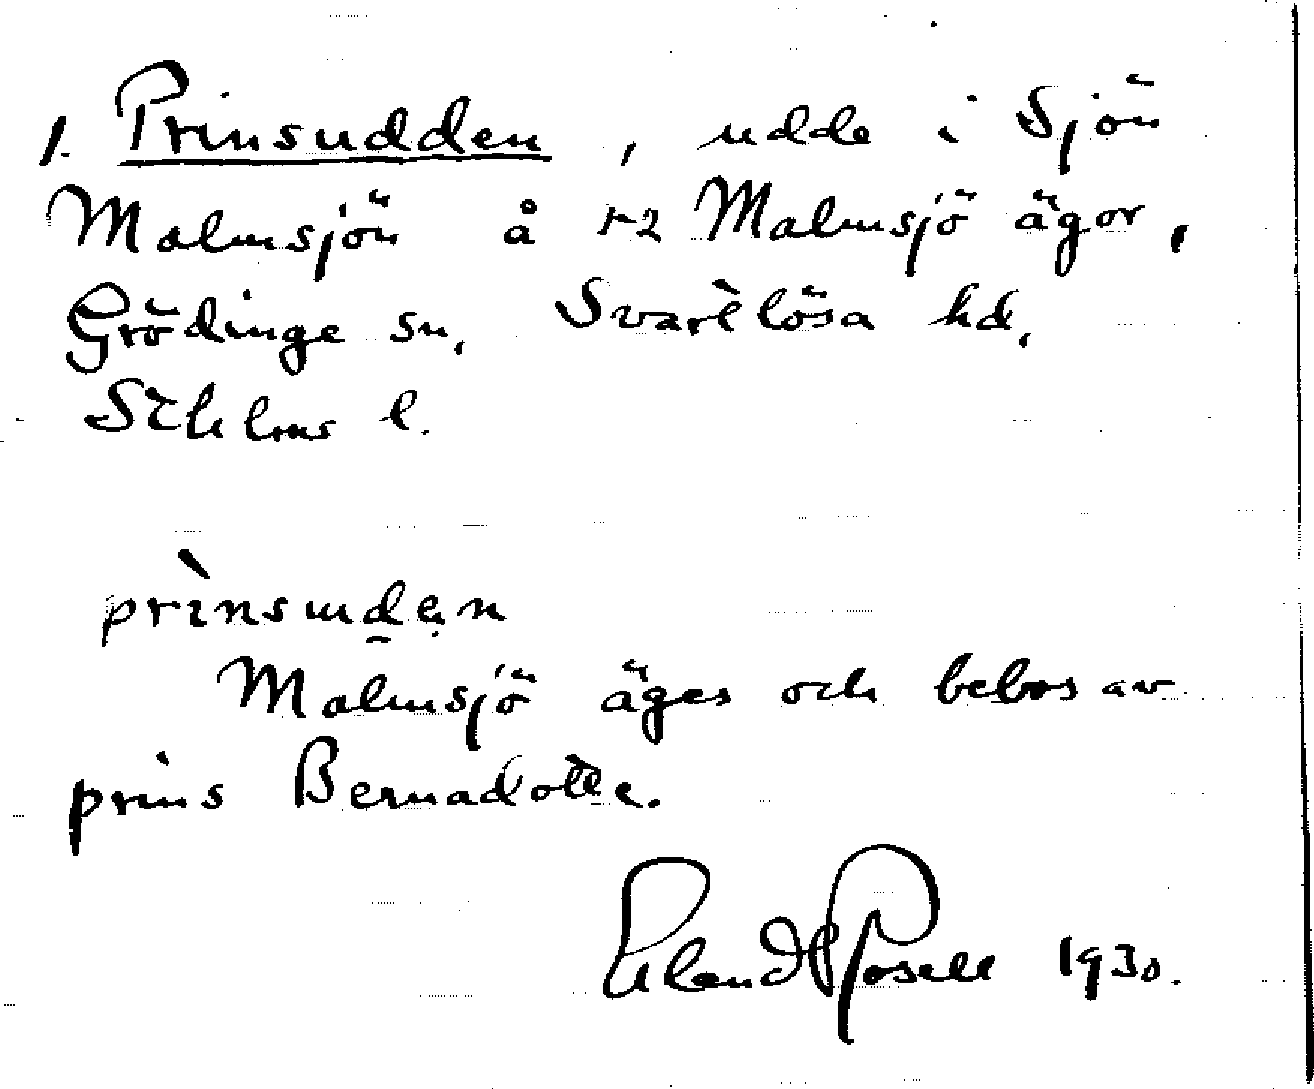 1. Prinsudden, udde i Sjön
Malmsjön å r2 Malmsjö ägor,
Grödinge sn, Svartlösa hd,
Sthlms l.
prìnsuden
Malmsjö äges och bebos av
prins Bernadotte.
Erland Rosell 1930.